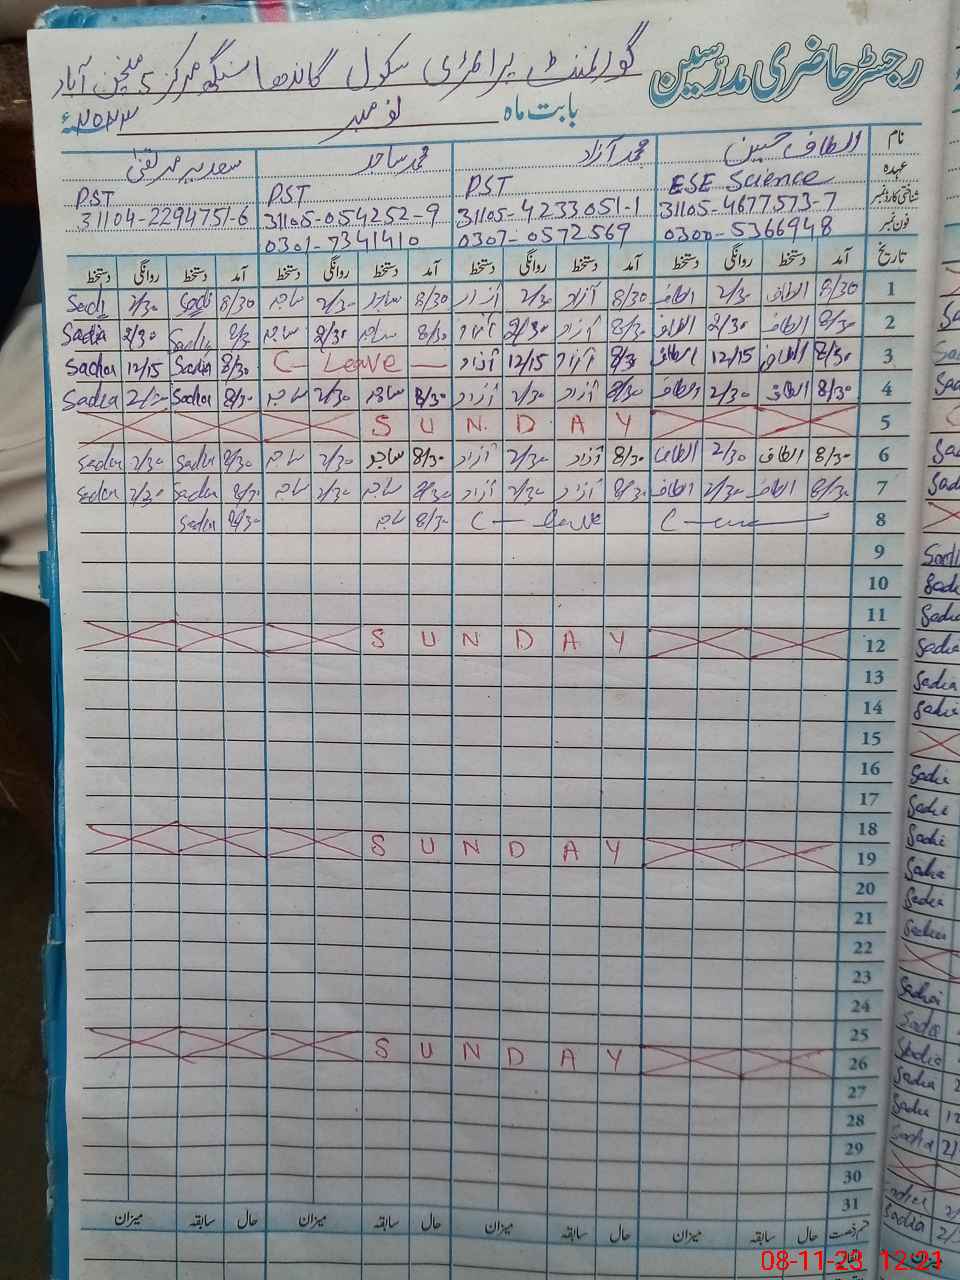 رجسٹر حاضری مدرسین
گورنمنٹ پرائمری سکول گاندھا سنگھ مرکز 5 منچن آباد
بابت ماہ نومبر ۲۰۲۳ء
نام الطاف حسین محمد آزاد محمد ساجد سعدیہ
عہدہ ESE Science PST PST PST
شناختی کارڈ نمبر 31105-4677573-7 31105-4233051-1 31105-054252-9 31104-2294751-6
فون نمبر 0300-5366948 0307-0572569 0301-7341410
تاریخ آمد دستخط روانگی دستخط آمد دستخط روانگی دستخط آمد دستخط روانگی دستخط آمد دستخط روانگی دستخط
1 8/30 الطاف 2/30 الطاف 8/30 آزاد 2/30 آزاد 8/30 ساجد 2/30 ساجد 8/30 Sadi 2/30 Sadi
2 8/30 الطاف 2/30 الطاف 8/30 آزاد 2/30 آزاد 8/30 ساجد 2/30 ساجد 8/30 Sadia 2/30 Sadia
3 8/30 الطاف 12/15 الطاف 8/30 آزاد 12/15 آزاد C- Leave — 8/30 Sadia 12/15 Sadia
4 8/30 الطاف 2/30 الطاف 8/30 آزاد 2/30 آزاد 8/30 ساجد 2/30 ساجد 8/30 Sadia 2/30 Sadia
5 S U N D A Y
6 8/30 الطاف 2/30 الطاف 8/30 آزاد 2/30 آزاد 8/30 ساجد 2/30 ساجد 8/30 Sadia 2/30 Sadia
7 8/30 الطاف 2/30 الطاف 8/30 آزاد 2/30 آزاد 8/30 ساجد 2/30 ساجد 8/30 Sadia 2/30 Sadia
8 C — C — leave 8/30 ساجد 8/30 Sadia
9
10
11
12 S U N D A Y
13
14
15
16
17
18
19 S U N D A Y
20
21
22
23
24
25
26 S U N D A Y
27
28
29
30
31
قسم رخصت حال سابقہ میزان حال سابقہ میزان حال سابقہ میزان حال سابقہ میزان
08-11-23 12:21